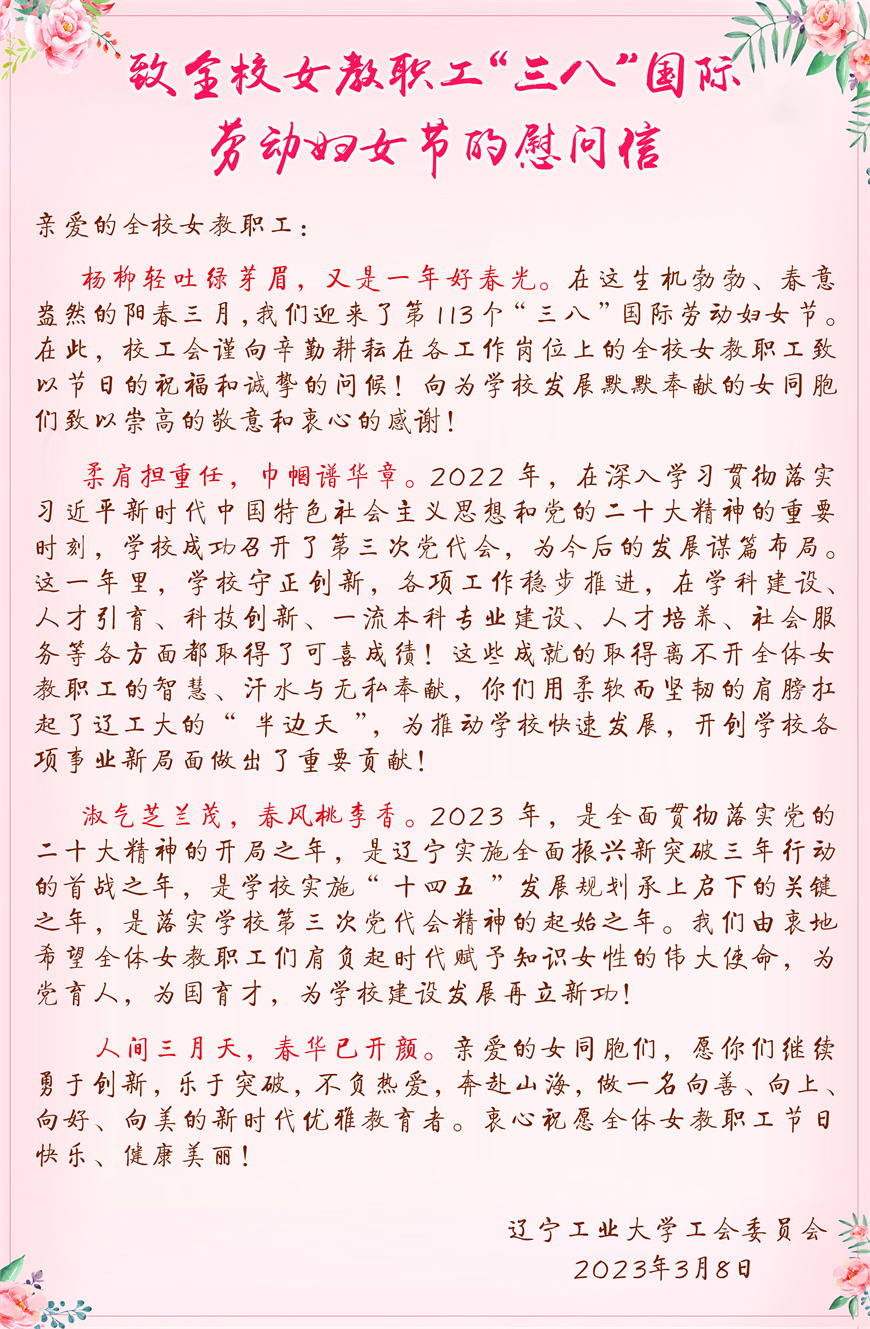 致全校女教职工“三八”国际
劳动妇女节的慰问信
亲爱的全校女教职工：
杨柳轻吐绿芽眉，又是一年好春光。在这生机勃勃、春意
盎然的阳春三月，我们迎来了第113个“三八”国际劳动妇女节。
在此，校工会谨向辛勤耕耘在各工作岗位上的全校女教职工致
以节日的祝福和诚挚的问候！向为学校发展默默奉献的女同胞
们致以崇高的敬意和衷心的感谢！
柔肩担重任，巾帼谱华章。2022年，在深入学习贯彻落实
习近平新时代中国特色社会主义思想和党的二十大精神的重要
时刻，学校成功召开了第三次党代会，为今后的发展谋篇布局。
这一年里，学校守正创新，各项工作稳步推进，在学科建设、
人才引育、科技创新、一流本科专业建设、人才培养、社会服
务等各方面都取得了可喜成绩！这些成就的取得离不开全体女
教职工的智慧、汗水与无私奉献，你们用柔软而坚韧的肩膀扛
起了辽工大的“半边天”，为推动学校快速发展，开创学校各
项事业新局面做出了重要贡献！
淑气芝兰茂，春风桃李香。2023年，是全面贯彻落实党的
二十大精神的开局之年，是辽宁实施全面振兴新突破三年行动
的首战之年，是学校实施“十四五”发展规划承上启下的关键
之年，是落实学校第三次党代会精神的起始之年。我们由衷地
希望全体女教职工们肩负起时代赋予知识女性的伟大使命，为
党育人，为国育才，为学校建设发展再立新功！
人间三月天，春华已开颜。亲爱的女同胞们，愿你们继续
勇于创新，乐于突破，不负热爱，奔赴山海，做一名向善、向上、
向好、向美的新时代优雅教育者。衷心祝愿全体女教职工节日
快乐、健康美丽！
辽宁工业大学工会委员会
2023年3月8日